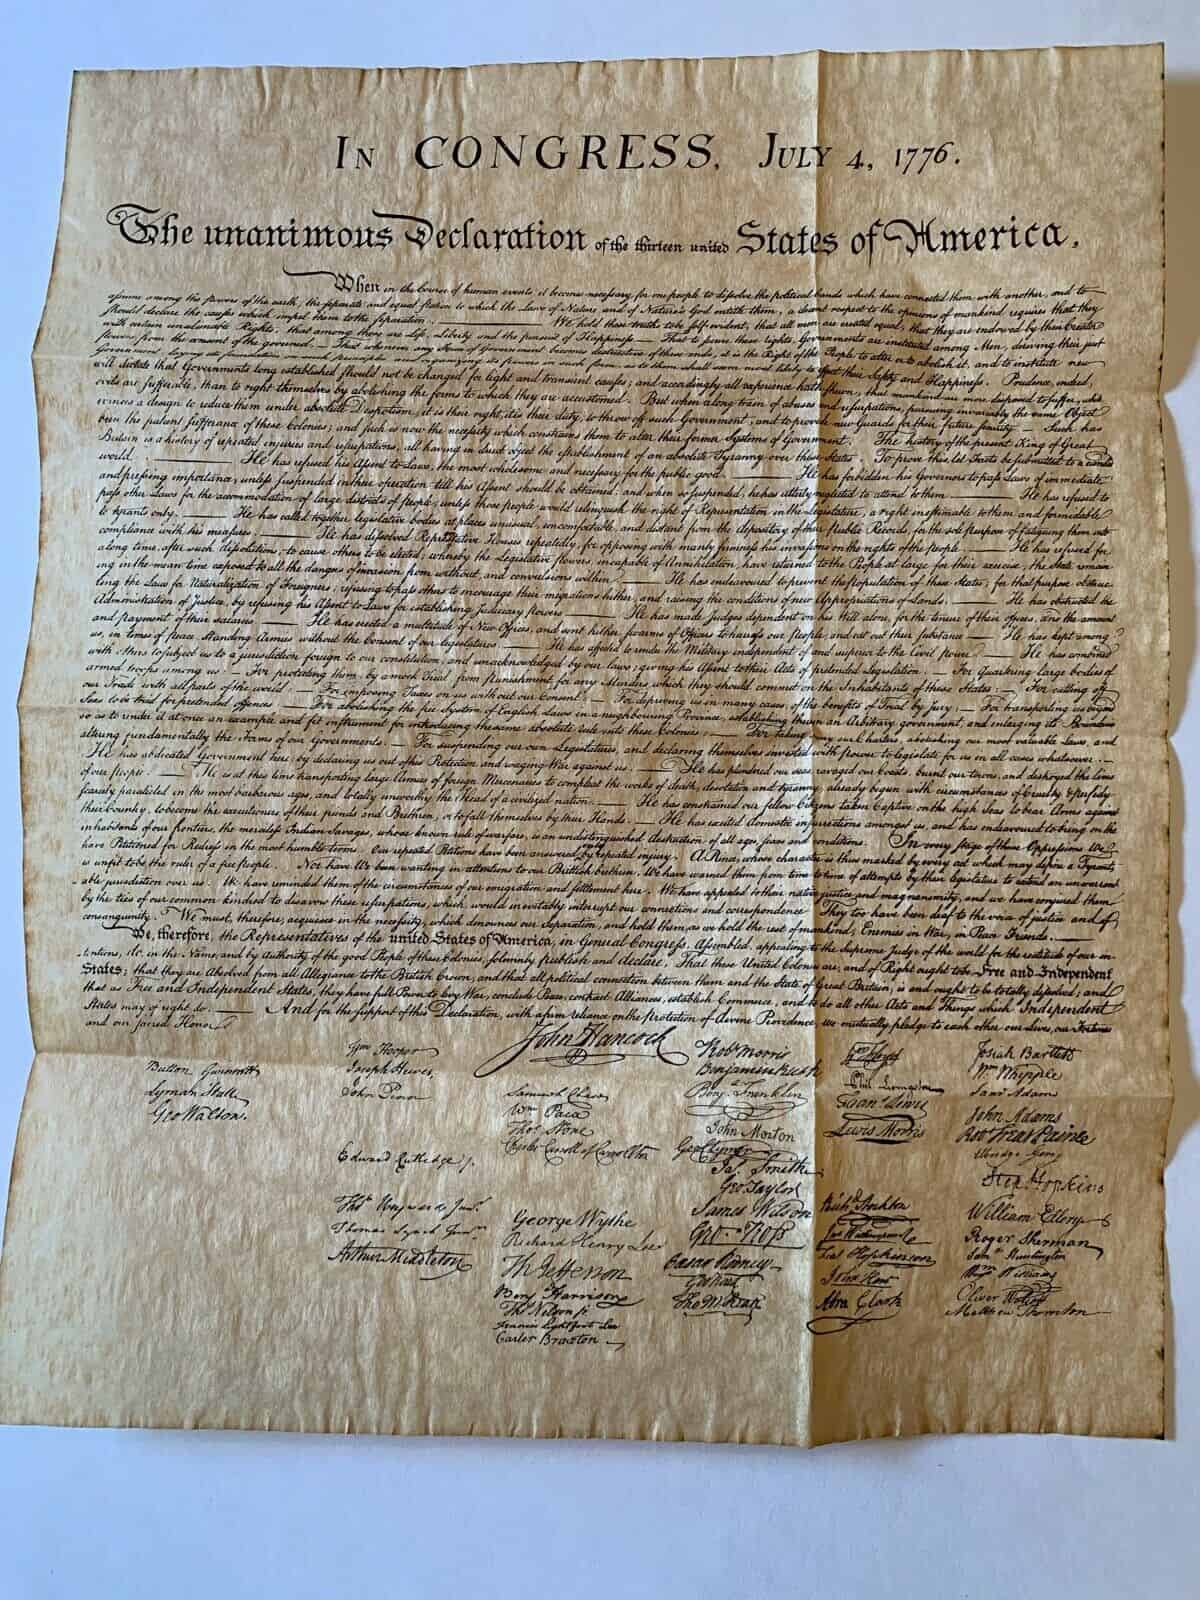 In CONGRESS, July 4, 1776.
The unanimous Declaration of the thirteen united States of America,
When in the Course of human events it becomes necessary for one people to dissolve the political bands which have connected them with another, and to
assume among the powers of the earth, the separate and equal station to which the Laws of Nature and of Nature's God entitle them, a decent respect to the opinions of mankind requires that they
should declare the causes which impel them to the separation. — We hold these truths to be self-evident, that all men are created equal, that they are endowed by their Creator
with certain unalienable Rights, that among these are Life, Liberty and the pursuit of Happiness — That to secure these rights, Governments are instituted among Men, deriving their just
powers from the consent of the governed — That whenever any Form of Government becomes destructive of these ends, it is the Right of the People to alter or to abolish it, and to institute new
Government, laying its foundation on such principles and organizing its powers in such form, as to them shall seem most likely to effect their Safety and Happiness. Prudence, indeed,
will dictate that Governments long established should not be changed for light and transient causes; and accordingly all experience hath shewn, that mankind are more disposed to suffer, while
evils are sufferable, than to right themselves by abolishing the forms to which they are accustomed. But when a long train of abuses and usurpations, pursuing invariably the same Object
evinces a design to reduce them under absolute Despotism, it is their right, it is their duty, to throw off such Government, and to provide new Guards for their future security — Such has
been the patient sufferance of these Colonies; and such is now the necessity which constrains them to alter their former Systems of Government. The history of the present King of Great
Britain is a history of repeated injuries and usurpations, all having in direct object the establishment of an absolute Tyranny over these States. To prove this, let Facts be submitted to a candid
world. — He has refused his Assent to Laws, the most wholesome and necessary for the public good. — He has forbidden his Governors to pass Laws of immediate
and pressing importance, unless suspended in their operation till his Assent should be obtained; and when so suspended, he has utterly neglected to attend to them — He has refused to
pass other Laws for the accommodation of large districts of people, unless those people would relinquish the right of Representation in the Legislature, a right inestimable to them and formidable
to tyrants only. — He has called together legislative bodies at places unusual, uncomfortable, and distant from the depository of their Public Records, for the sole purpose of fatiguing them into
compliance with his measures. — He has dissolved Representative Houses repeatedly, for opposing with manly firmness his invasions on the rights of the people. — He has refused for
a long time, after such dissolutions, to cause others to be elected; whereby the Legislative powers, incapable of Annihilation, have returned to the People at large for their exercise; the State remain-
ing in the mean time exposed to all the dangers of invasion from without, and convulsions within. — He has endeavoured to prevent the population of these States; for that purpose obstruc-
ting the Laws for Naturalization of Foreigners; refusing to pass others to encourage their migrations hither, and raising the conditions of new Appropriations of Lands. — He has obstructed the
Administration of Justice, by refusing his Assent to Laws for establishing Judiciary powers — He has made Judges dependent on his Will alone, for the tenure of their offices, and the amount
and payment of their salaries. — He has erected a multitude of New Offices, and sent hither swarms of Officers to harass our people, and eat out their substance — He has kept among
us, in times of peace, Standing Armies without the Consent of our legislatures — He has affected to render the Military independent of and superior to the Civil power — He has combined
with others to subject us to a jurisdiction foreign to our constitution, and unacknowledged by our laws; giving his Assent to their Acts of pretended Legislation: — For Quartering large bodies of
armed troops among us — For protecting them, by a mock Trial, from punishment for any Murders which they should commit on the Inhabitants of these States: — For cutting off
our Trade with all parts of the world: — For imposing Taxes on us without our Consent: — For depriving us in many cases, of the benefits of Trial by jury: — For transporting us beyond
Seas to be tried for pretended offences — For abolishing the free System of English Laws in a neighbouring Province, establishing therein an Arbitrary government, and enlarging its Boundaries
so as to render it at once an example and fit instrument for introducing the same absolute rule into these Colonies: — For taking away our Charters, abolishing our most valuable Laws, and
altering fundamentally the Forms of our Governments: — For suspending our own Legislatures, and declaring themselves invested with power to legislate for us in all cases whatsoever. —
He has abdicated Government here, by declaring us out of his Protection and waging War against us. — He has plundered our seas, ravaged our Coasts, burnt our towns, and destroyed the lives
of our people. — He is at this time transporting large Armies of foreign Mercenaries to compleat the works of death, desolation and tyranny, already begun with circumstances of Cruelty & perfidy
scarcely paralleled in the most barbarous ages, and totally unworthy the Head of a civilized nation. — He has constrained our fellow Citizens taken Captive on the high Seas to bear Arms against
their Country, to become the executioners of their friends and Brethren, or to fall themselves by their Hands. — He has excited domestic insurrections amongst us, and has endeavoured to bring on the
inhabitants of our frontiers, the merciless Indian Savages, whose known rule of warfare, is an undistinguished destruction of all ages, sexes and conditions. In every stage of these Oppressions We
have Petitioned for Redress in the most humble terms: Our repeated Petitions have been answered only by repeated injury. A Prince, whose character is thus marked by every act which may define a Tyrant,
is unfit to be the ruler of a free people. Nor have We been wanting in attentions to our Brittish brethren. We have warned them from time to time of attempts by their legislature to extend an unwarrant-
able jurisdiction over us. We have reminded them of the circumstances of our emigration and settlement here. We have appealed to their native justice and magnanimity, and we have conjured them
by the ties of our common kindred to disavow these usurpations, which, would inevitably interrupt our connections and correspondence They too have been deaf to the voice of justice and of
consanguinity. We must, therefore, acquiesce in the necessity, which denounces our Separation, and hold them, as we hold the rest of mankind, Enemies in War, in Peace Friends. —
We, therefore, the Representatives of the united States of America, in General Congress, Assembled, appealing to the Supreme Judge of the world for the rectitude of our in-
tentions, do, in the Name, and by Authority of the good People of these Colonies, solemnly publish and declare, That these United Colonies are, and of Right ought to be Free and Independent
States; that they are Absolved from all Allegiance to the British Crown, and that all political connection between them and the State of Great Britain, is and ought to be totally dissolved; and
that as Free and Independent States, they have full Power to levy War, conclude Peace, contract Alliances, establish Commerce, and to do all other Acts and Things which Independent
States may of right do. — And for the support of this Declaration, with a firm reliance on the protection of divine Providence, we mutually pledge to each other our Lives, our Fortunes
and our sacred Honor
John Hancock
Button Gwinnett
Lyman Hall
Geo Walton.
Wm Hooper
Joseph Hewes,
John Penn
Edward Rutledge /.
Thos Heyward Junr.
Thomas Lynch Junr.
Arthur Middleton
Samuel Chase
Wm Paca
Thos Stone
Charles Carroll of Carrollton
George Wythe
Richard Henry Lee
Th Jefferson
Benj Harrison
Thos Nelson jr
Francis Lightfoot Lee
Carter Braxton
Robt Morris
Benjamin Rush
Benj. Franklin
John Morton
Geo Clymer
Jas. Smith
Geo. Taylor
James Wilson
Geo. Ross
Caesar Rodney
Geo Read
Tho M:Kean
Wm Floyd
Phil. Livingston
Frans. Lewis
Lewis Morris
Richd. Stockton
Jno Witherspoon
Fras. Hopkinson
John Hart
Abra Clark
Josiah Bartlett
Wm Whipple
Saml Adams
John Adams
Robt Treat Paine
Elbridge Gerry
Step. Hopkins
William Ellery
Roger Sherman
Saml Huntington
Wm Williams
Oliver Wolcott
Matthew Thornton